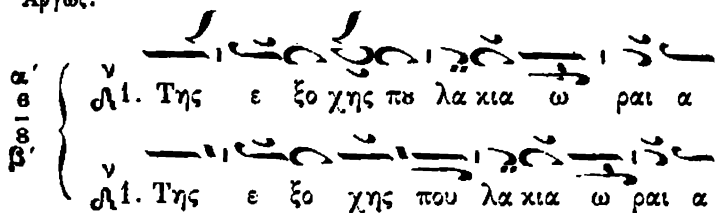 Ἀργῶς.
α΄ 6/8 β΄
ν 1. Της ε ξο χης πȣ λα κια ω ραι α
ν 1. Της ε ξο χης που λα κια ω ραι α